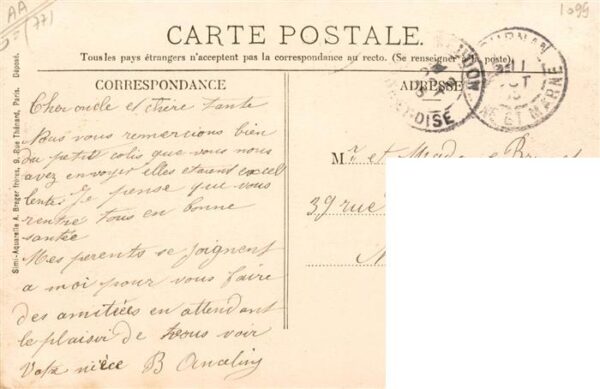 AA
(77)
1099
CARTE POSTALE.
Tous les pays étrangers n'acceptent pas la correspondance au recto. (Se renseigner à la poste).
CORRESPONDANCE
Cher oncle et chère tante
Nous vous remercions bien
du petit colis que vous nous
avez envoyer elles etaient excel
lentes je pense que vous
rentre tous en bonne
santée
Mes perents se joignent
a moi pour vous faire
des amitiées en attendant
le plaisir de vous voir
Votre nièce B
ADRESSE
OISE
ET MARNE
Mr et Madame
39 rue
Simi-Aquarelle A. Breger frères, 9, Rue Thénard, Paris. Déposé.